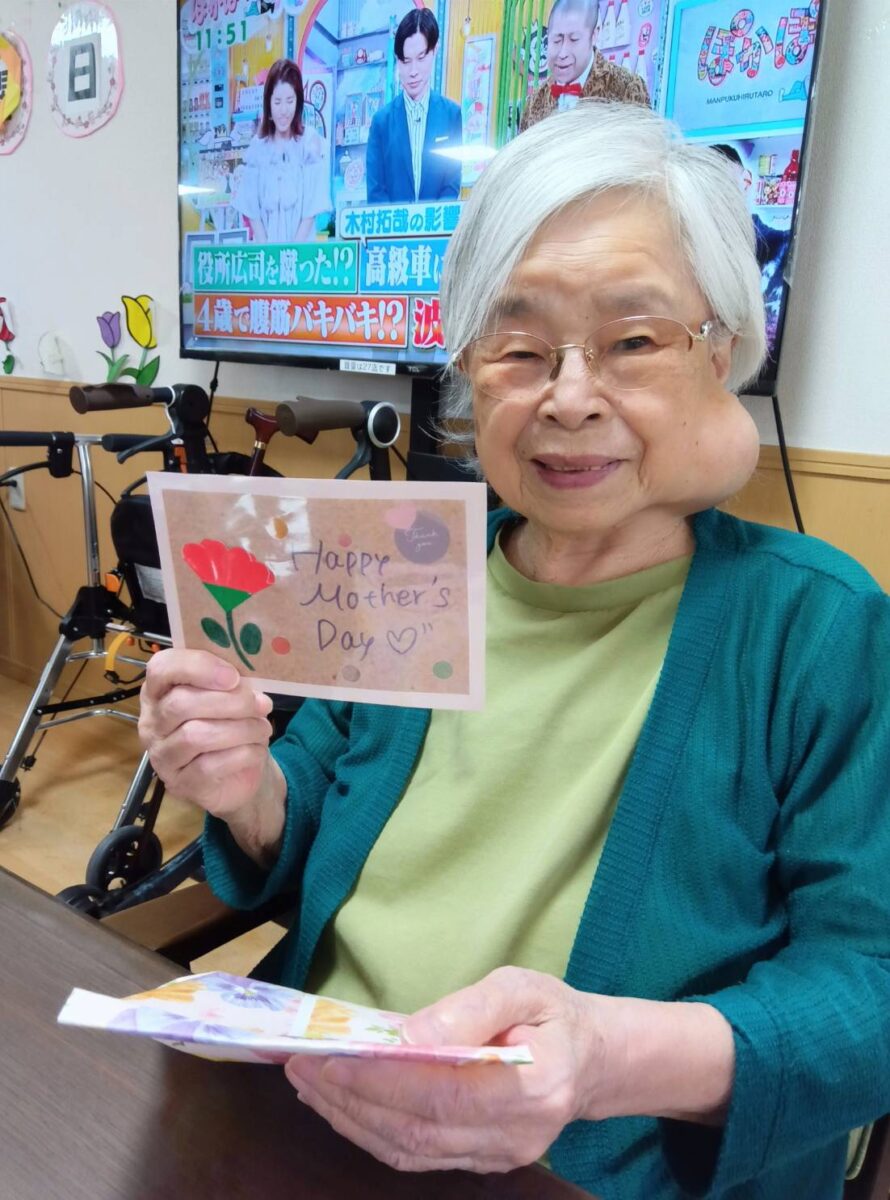 日
ぽかぽか
11:51
ぽかぽか
MANPUKUHIRUTARO
木村拓哉の影響
役所広司を蹴った!?
高級車に
4歳で腹筋バキバキ!?
波
音量は27迄です
TCL
Thank you
Happy
Mother's
Day♡"